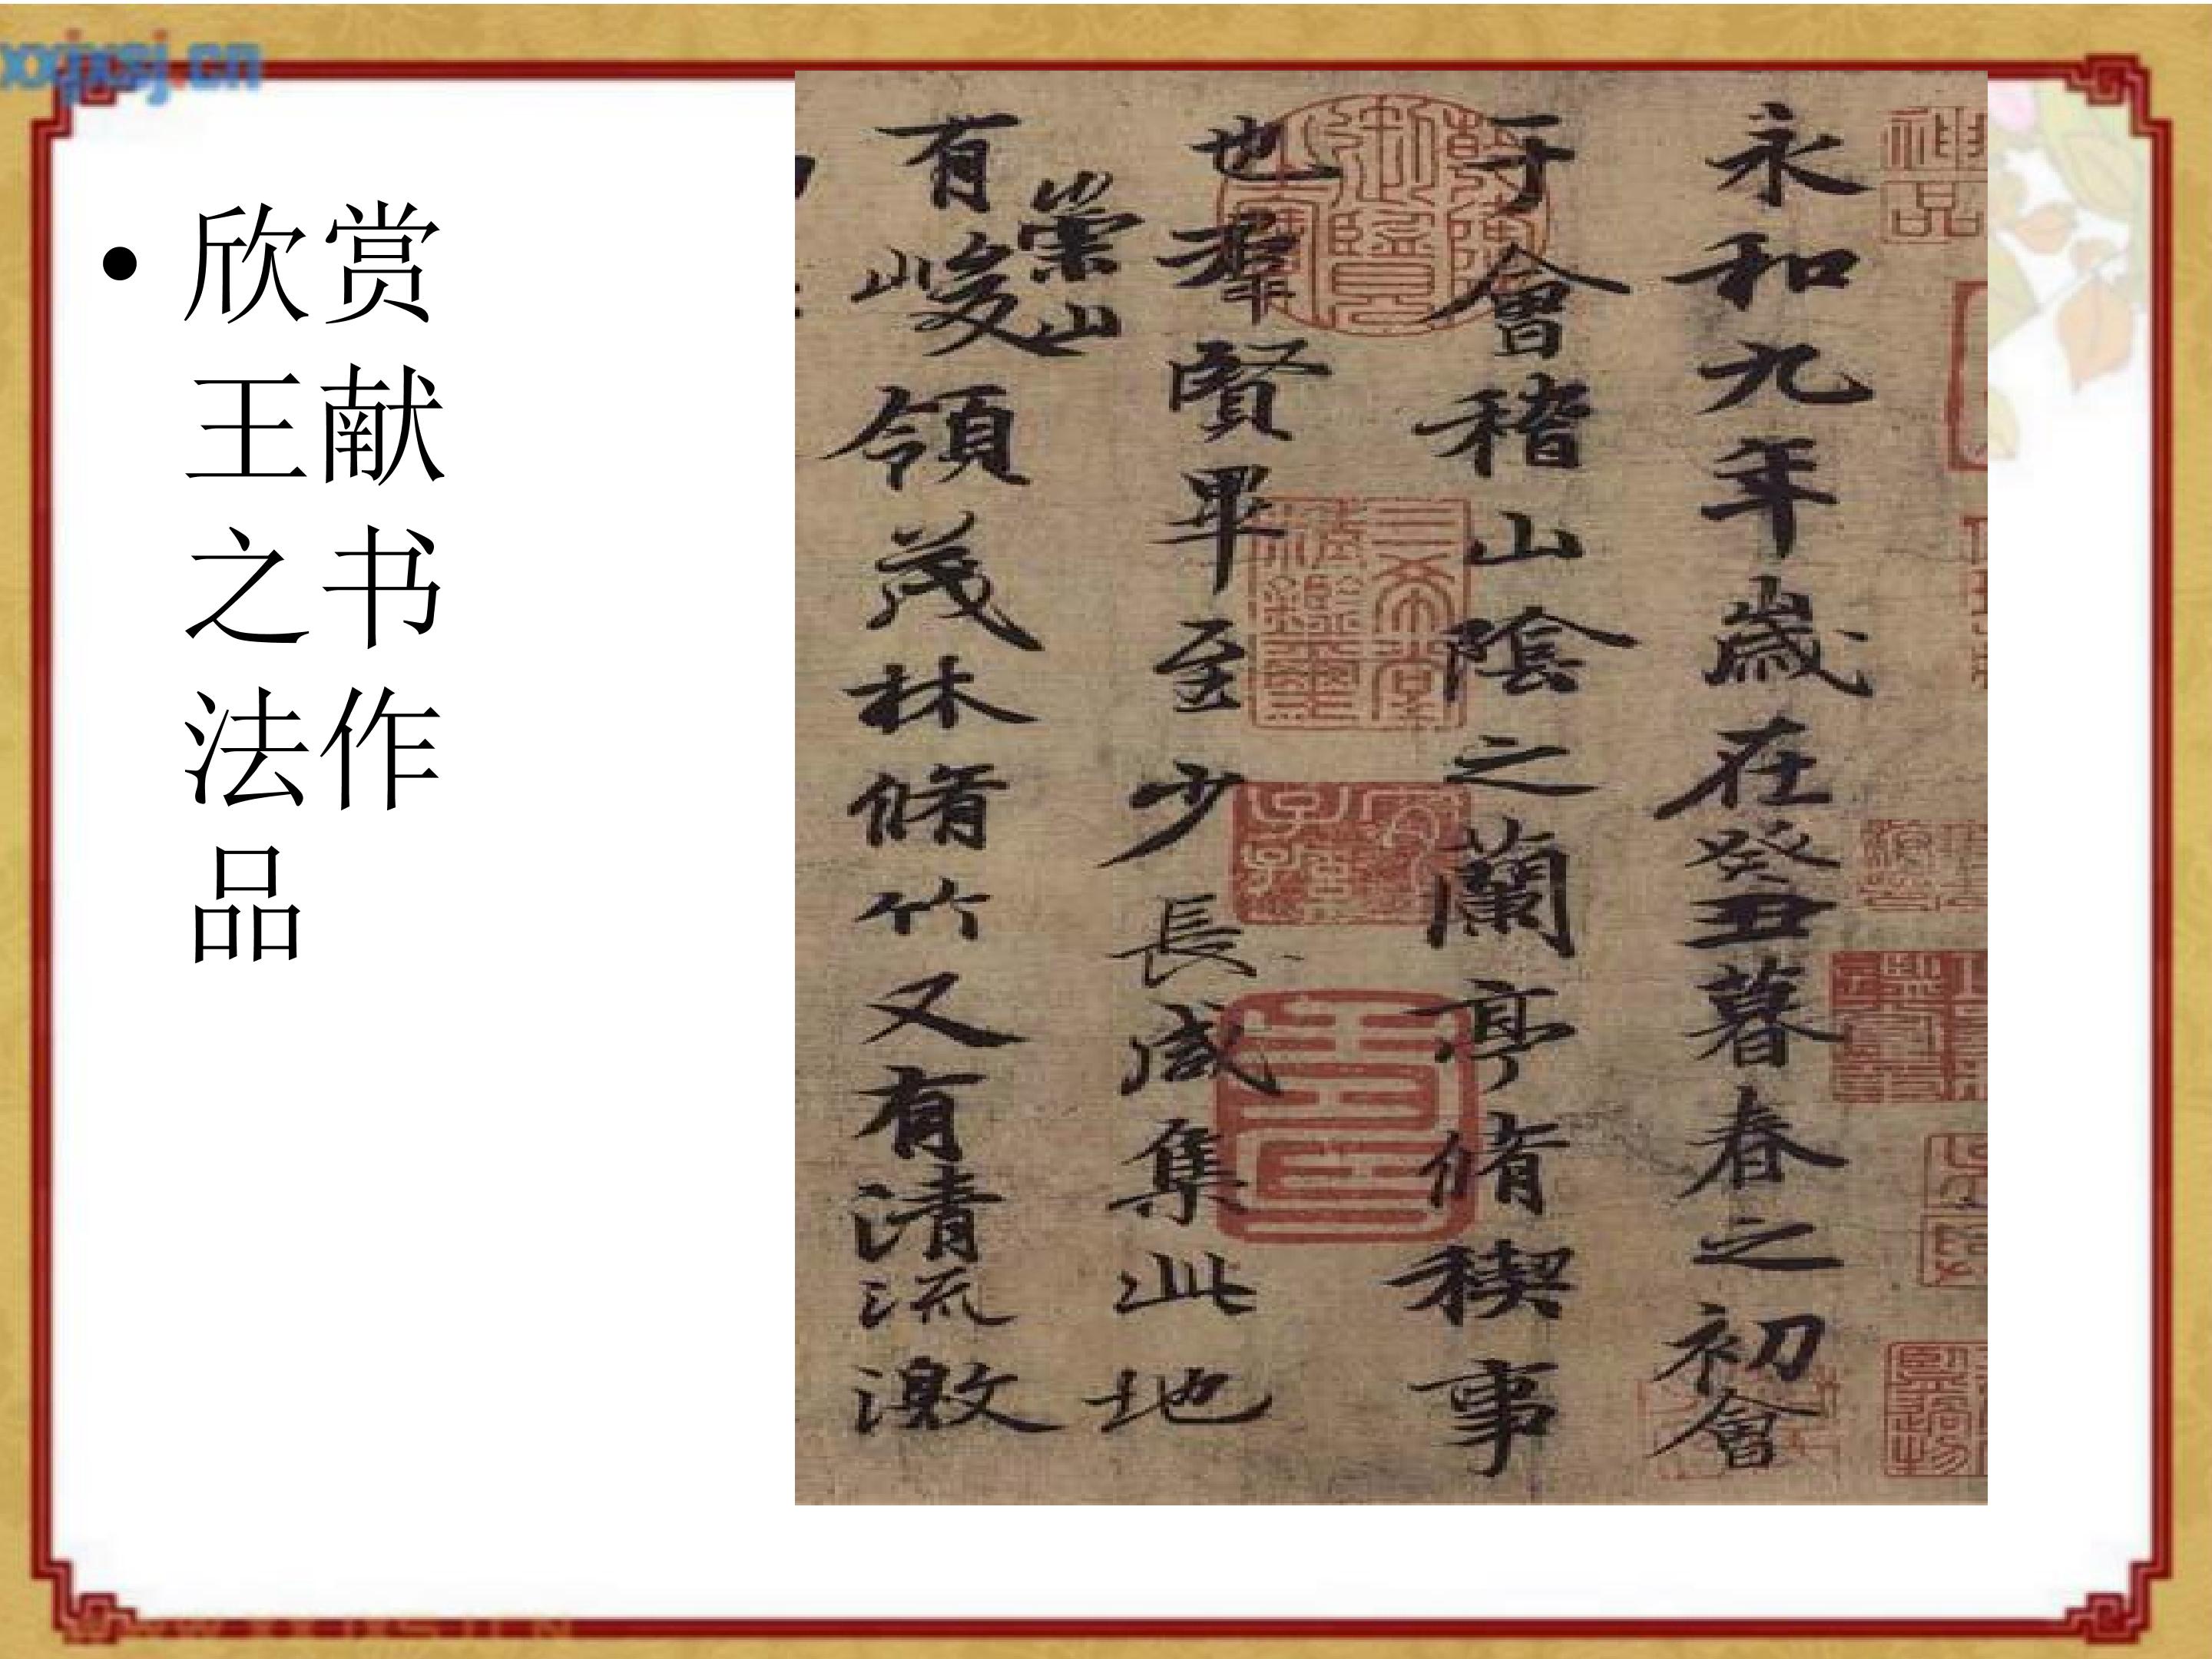 xxjxsj.cn
欣赏
王献
之书
法作
品
永和九年歲在癸丑暮春之初會
于會稽山陰之蘭亭脩稧事
也群賢畢至少長咸集此地
有崇山峻領茂林脩竹又有清流激
神品